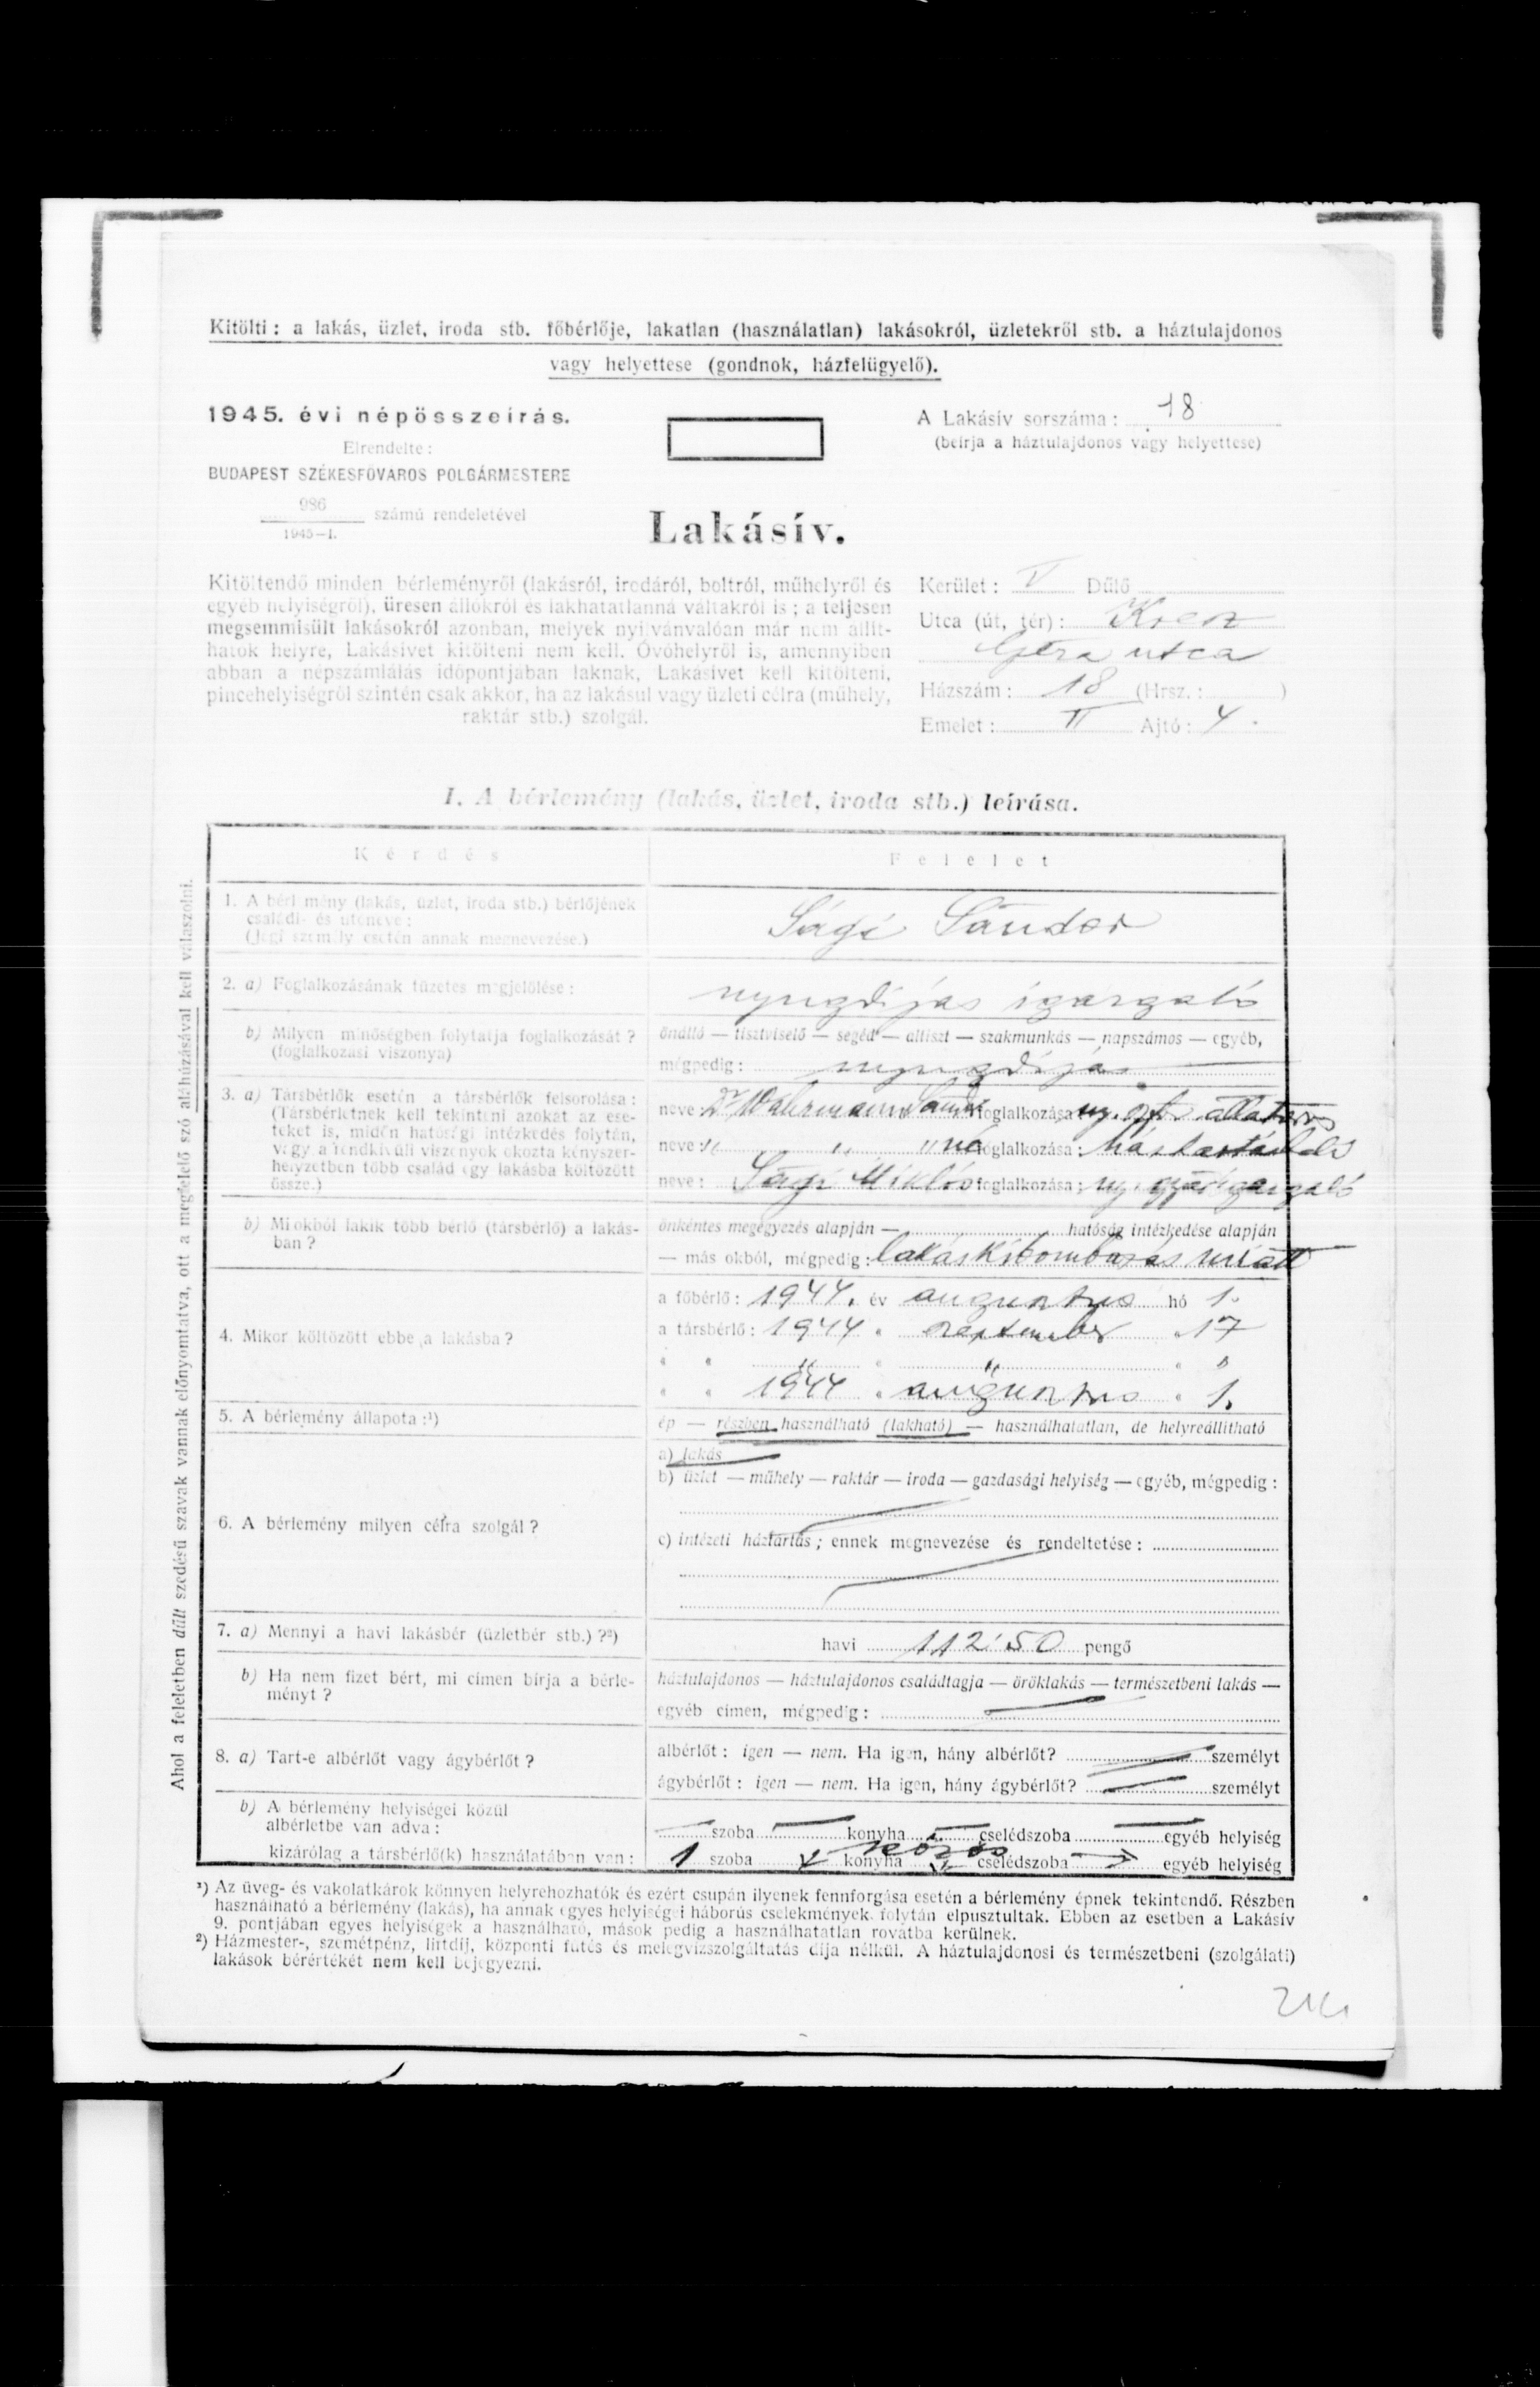 Kitölti : a lakás, üzlet, iroda stb. főbérlője, lakatlan (használatlan) lakásokról, üzletekről stb. a háztulajdonos
vagy helyettese (gondnok, házfelügyelő).
1945. évi népösszeírás.
Elrendelte :
BUDAPEST SZÉKESFŐVÁROS POLGÁRMESTERE
986
1945—I. számú rendeletével
A Lakásív sorszáma : 18
(beírja a háztulajdonos vagy helyettese)
Lakásív.
Kitöltendő minden bérleményről (lakásról, irodáról, boltról, műhelyről és
egyéb helyiségről), üresen állókról és lakhatatlanná váltakról is ; a teljesen
megsemmisült lakásokról azonban, melyek nyilvánvalóan már nem állít-
hatók helyre, Lakásívet kitölteni nem kell. Óvóhelyről is, amennyiben
abban a népszámlálás időpontjában laknak, Lakásívet kell kitölteni,
pincehelyiségről szintén csak akkor, ha az lakásul vagy üzleti célra (műhely,
raktár stb.) szolgál.
Kerület : V Dűlő
Utca (út, tér) : Kresz
Géza utca
Házszám : 18 (Hrsz. : )
Emelet : II Ajtó : 4.
I. A bérlemény (lakás, üzlet, iroda stb.) leírása.
Kérdés
Felelet
1. A bérlemény (lakás, üzlet, iroda stb.) bérlőjének
családi- és utóneve :
(Jogi személy esetén annak megnevezése.)
Sági Sándor
2. a) Foglalkozásának tüzetes megjelölése :
nyugdíjas igazgató
b) Milyen minőségben folytatja foglalkozását ?
(foglalkozási viszonya)
önálló — tisztviselő — segéd — altiszt — szakmunkás — napszámos — egyéb,
mégpedig : nyugdíjas
3. a) Társbérlők esetén a társbérlők felsorolása :
(Társbérletnek kell tekinteni azokat az ese-
teket is, midőn hatósági intézkedés folytán,
vagy a rendkívüli viszonyok okozta kényszer-
helyzetben több család egy lakásba költözött
össze.)
neve : Dr Wahrmann Sándor foglalkozása : ny. állatorvos
neve : " " " né foglalkozása : háztartásbeli
neve : Sági Miklós foglalkozása : ny. gyárigazgató
b) Mi okból lakik több bérlő (társbérlő) a lakás-
ban ?
önkéntes megegyezés alapján — hatóság intézkedése alapján
— más okból, mégpedig : lakáskibombázás miatt
4. Mikor költözött ebbe a lakásba ?
a főbérlő : 1944. év augusztus hó 1.
a társbérlő : 1944 " szeptember " 17
" " " " " " "
" " 1944 " augusztus " 1.
5. A bérlemény állapota :¹)
ép — részben használható (lakható) — használhatatlan, de helyreállítható
6. A bérlemény milyen célra szolgál ?
a) lakás
b) üzlet — műhely — raktár — iroda — gazdasági helyiség — egyéb, mégpedig :
c) intézeti háztartás ; ennek megnevezése és rendeltetése :
7. a) Mennyi a havi lakásbér (üzletbér stb.) ?²)
havi 112'50 pengő
b) Ha nem fizet bért, mi címen bírja a bérle-
ményt ?
háztulajdonos — háztulajdonos családtagja — öröklakás — természetbeni lakás —
egyéb címen, mégpedig :
8. a) Tart-e albérlőt vagy ágybérlőt ?
albérlőt : igen — nem. Ha igen, hány albérlőt? személyt
ágybérlőt : igen — nem. Ha igen, hány ágybérlőt? személyt
b) A bérlemény helyiségei közül
albérletbe van adva :
szoba konyha cselédszoba egyéb helyiség
kizárólag a társbérlő(k) használatában van :
1 szoba konyha közös cselédszoba egyéb helyiség
Ahol a feleletben dűlt szedésű szavak vannak előnyomtatva, ott a megfelelő szó aláhúzásával kell válaszolni.
¹) Az üveg- és vakolatkárok könnyen helyrehozhatók és ezért csupán ilyenek fennforgása esetén a bérlemény épnek tekintendő. Részben
használható a bérlemény (lakás), ha annak egyes helyiségei háborús cselekmények folytán elpusztultak. Ebben az esetben a Lakásív
9. pontjában egyes helyiségek a használható, mások pedig a használhatatlan rovatba kerülnek.
²) Házmester-, szemétpénz, liftdíj, központi fűtés és melegvízszolgáltatás díja nélkül. A háztulajdonosi és természetbeni (szolgálati)
lakások bérértékét nem kell bejegyezni.